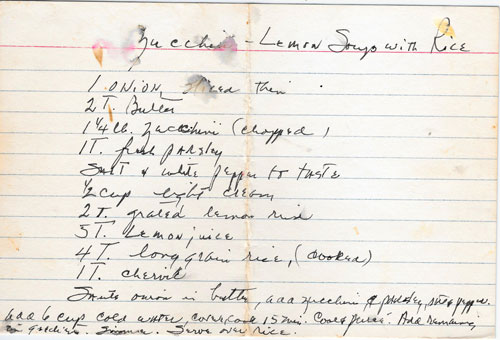 Zucchini - Lemon Soup with Rice
1 onion, sliced thin
2 T. Butter
1 1/4 lb. zucchini (chopped)
1 T. fresh parsley
Salt & white pepper to taste
1/2 cup light cream
2 T. grated lemon rind
5 T. Lemon juice
4 T. long grain rice, (cooked)
1 T. chervil
Saute onion in butter, add zucchini & parsley, salt & pepper.
add 6 cup cold water, cover, cook 15 min. Cool & puree. Add remaining
ingredients. Simmer. Serve over rice.